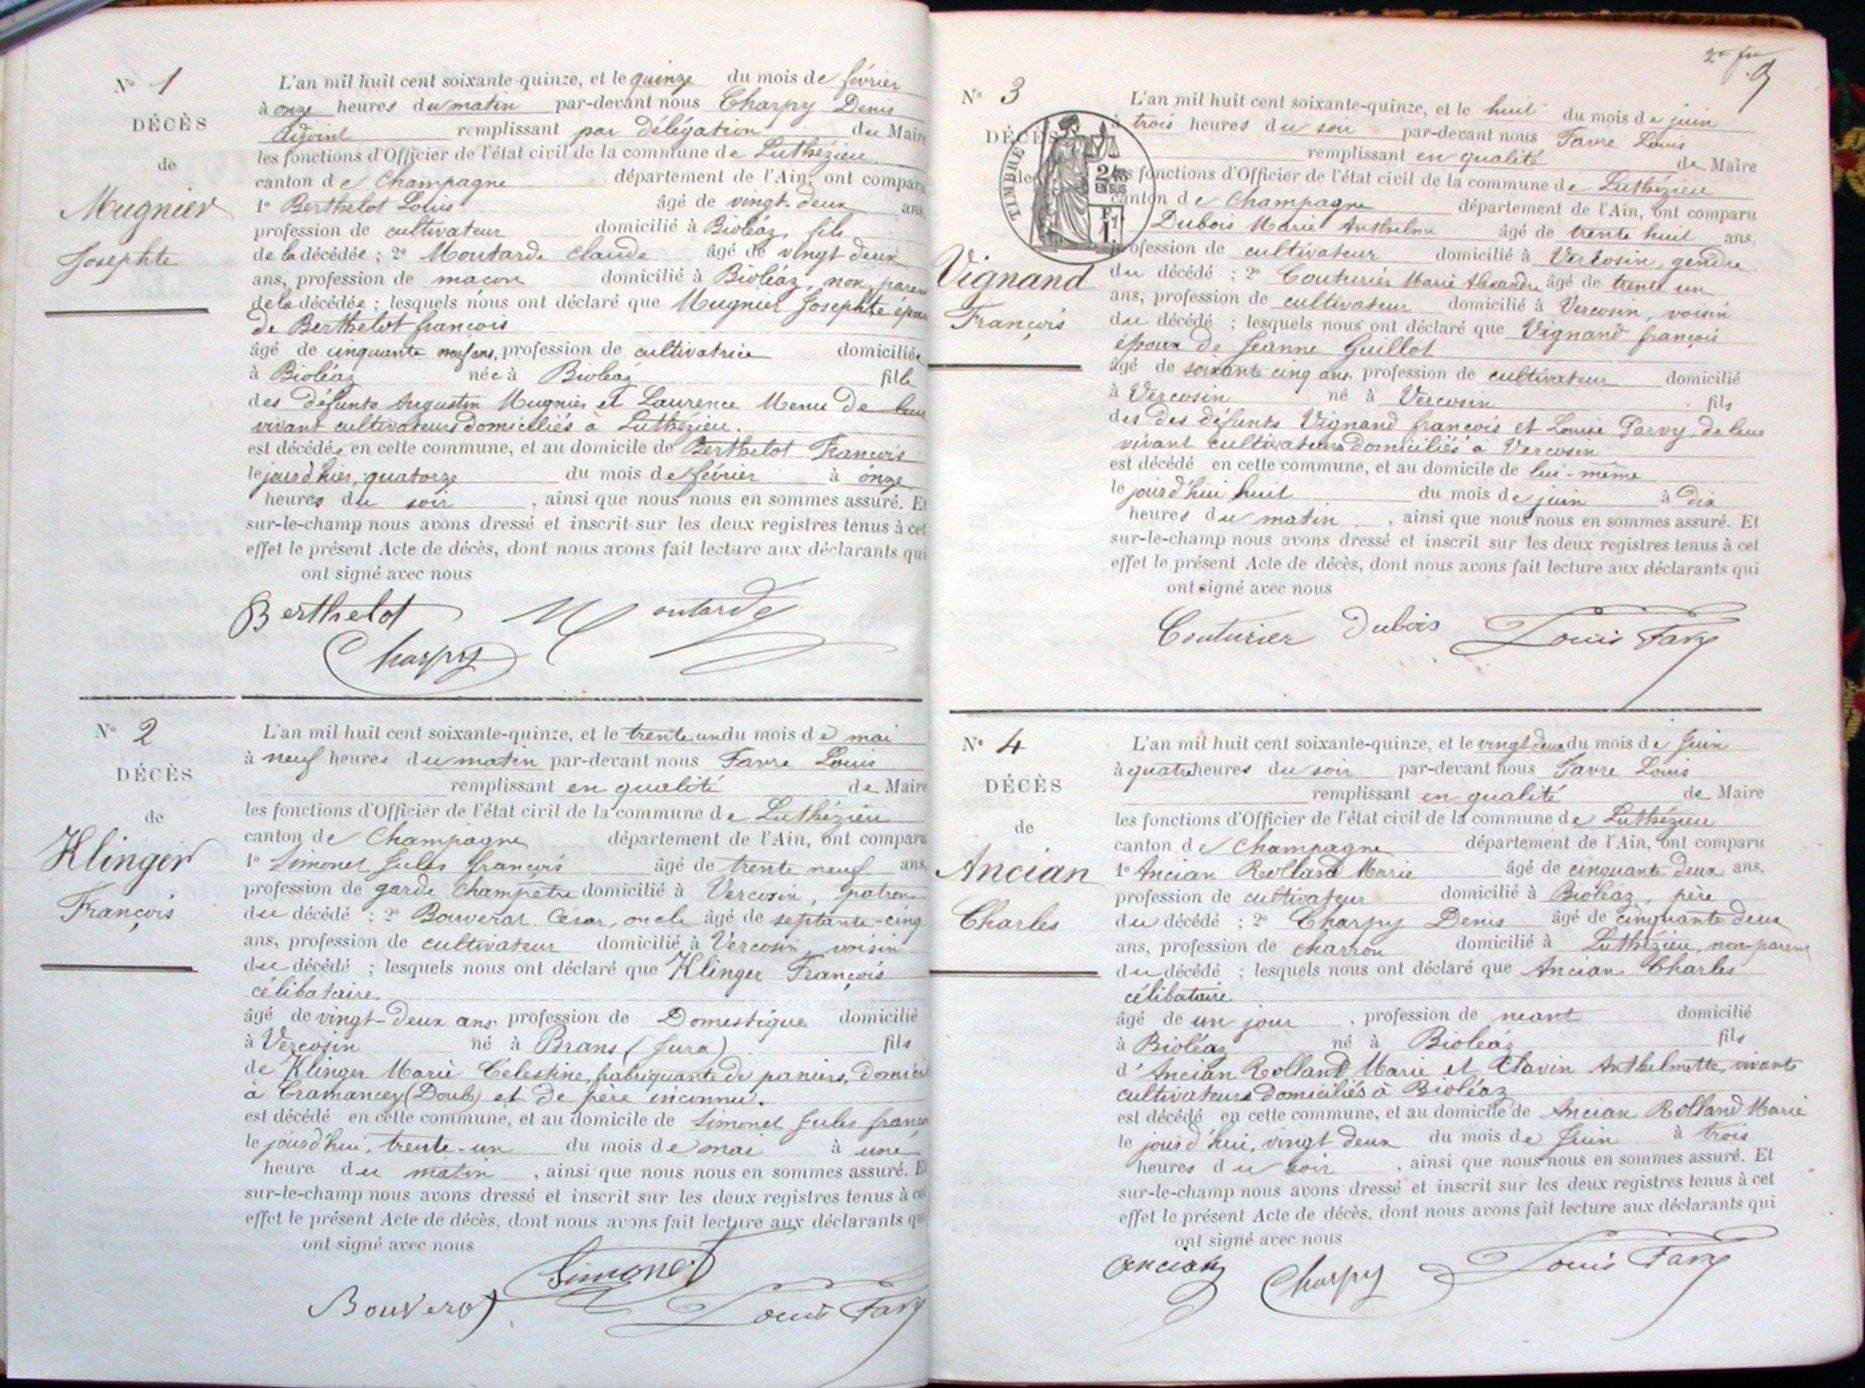 Nº 1
DÉCÈS
de
Mugnier
Josephte
L'an mil huit cent soixante-quinze, et le quinze du mois de février
à onze heures du matin par-devant nous Charpy Denis
Adjoint remplissant par délégation du Maire
les fonctions d'Officier de l'état civil de la commune de Luthézieu
canton de Champagne département de l'Ain, ont comparu
1º Berthelot Louis âgé de vingt-deux ans,
profession de cultivateur domicilié à Bioléaz, fils
de la décédée ; 2º Moutarde Claude âgé de vingt deux
ans, profession de maçon domicilié à Bioléaz, non parent
de la décédée ; lesquels nous ont déclaré que Mugnier Josephte épouse
de Berthelot françois
âgé de cinquante neuf ans, profession de cultivatrice domiciliée
à Bioléaz née à Bioléaz fille
des défunts Augustin Mugnier et Laurence Menu de leur
vivant cultivateurs domiciliés à Luthézieu.
est décédée en cette commune, et au domicile de Berthelot François
le jour d'hier, quatorze du mois de février à onze
heures du soir , ainsi que nous nous en sommes assuré. Et
sur-le-champ nous avons dressé et inscrit sur les deux registres tenus à cet
effet le présent Acte de décès, dont nous avons fait lecture aux déclarants qui
ont signé avec nous
Berthelot Moutarde
Charpy
Nº 2
DÉCÈS
de
Klinger
François
L'an mil huit cent soixante-quinze, et le trente un du mois de mai
à neuf heures du matin par-devant nous Favre Louis
remplissant en qualité de Maire
les fonctions d'Officier de l'état civil de la commune de Luthézieu
canton de Champagne département de l'Ain, ont comparu
1º Simonet Jules françois âgé de trente neuf ans,
profession de garde Champetre domicilié à Vercosin, patron
du décédé ; 2º Bouverot César, oncle âgé de septante-cinq
ans, profession de cultivateur domicilié à Vercosin, voisin
du décédé ; lesquels nous ont déclaré que Klinger François
célibataire
âgé de vingt-deux ans, profession de Domestique domicilié
à Vercosin né à Brans (Jura) fils
de Klinger Marie Célestine, fabriquante de paniers, domici
à Cramancey (Doubs) et de père inconnu.
est décédé en cette commune, et au domicile de Simonet Jules franço
le jourd'hui, trente-un du mois de mai à une
heure du matin , ainsi que nous nous en sommes assuré. Et
sur-le-champ nous avons dressé et inscrit sur les deux registres tenus à cet
effet le présent Acte de décès, dont nous avons fait lecture aux déclarants qui
ont signé avec nous
Simonet
Bouverot Louis Favre
Nº 3
DÉCÈS
de
TIMBRE
Vignand
François
L'an mil huit cent soixante-quinze, et le huit du mois de juin
à trois heures du soir par-devant nous Favre Louis
remplissant en qualité de Maire
les fonctions d'Officier de l'état civil de la commune de Luthézieu
canton de Champagne département de l'Ain, ont comparu
Dubois Marie Anthelme âgé de trente huit ans,
profession de cultivateur domicilié à Vercosin, gendre
du décédé ; 2º Couturier Marie Alexandre âgé de trente un
ans, profession de cultivateur domicilié à Vercosin, voisin
du décédé ; lesquels nous ont déclaré que Vignand françois
époux de Jeanne Guillot
âgé de soixante cinq ans, profession de cultivateur domicilié
à Vercosin né à Vercosin fils
des des défunts Vignand françois et Louise Parvy, de leur
vivant cultivateurs domiciliés à Vercosin
est décédé en cette commune, et au domicile de lui-même
le jourd'hui huit du mois de juin à dix
heures du matin , ainsi que nous nous en sommes assuré. Et
sur-le-champ nous avons dressé et inscrit sur les deux registres tenus à cet
effet le présent Acte de décès, dont nous avons fait lecture aux déclarants qui
ont signé avec nous
Couturier Dubois Louis Favre
Nº 4
DÉCÈS
de
Ancian
Charles
L'an mil huit cent soixante-quinze, et le vingt deux du mois de Juin
à quatre heures du soir par-devant nous Favre Louis
remplissant en qualité de Maire
les fonctions d'Officier de l'état civil de la commune de Luthézieu
canton de Champagne département de l'Ain, ont comparu
1º Ancian Rolland Marie âgé de cinquante deux ans,
profession de cultivateur domicilié à Bioléaz, père
du décédé ; 2º Charpy Denis âgé de cinquante deux
ans, profession de charron domicilié à Luthézieu, non-parent
du décédé ; lesquels nous ont déclaré que Ancian Charles
célibataire
âgé de un jour , profession de néant domicilié
à Bioléaz né à Bioléaz fils
d'Ancian Rolland Marie et Clavin Anthelmette, vivants
cultivateurs domiciliés à Bioléaz
est décédé en cette commune, et au domicile de Ancian Rolland Marie
le jourd'hui, vingt deux du mois de Juin à trois
heures du soir , ainsi que nous nous en sommes assuré. Et
sur-le-champ nous avons dressé et inscrit sur les deux registres tenus à cet
effet le présent Acte de décès, dont nous avons fait lecture aux déclarants qui
ont signé avec nous
Ancian Charpy Louis Favre